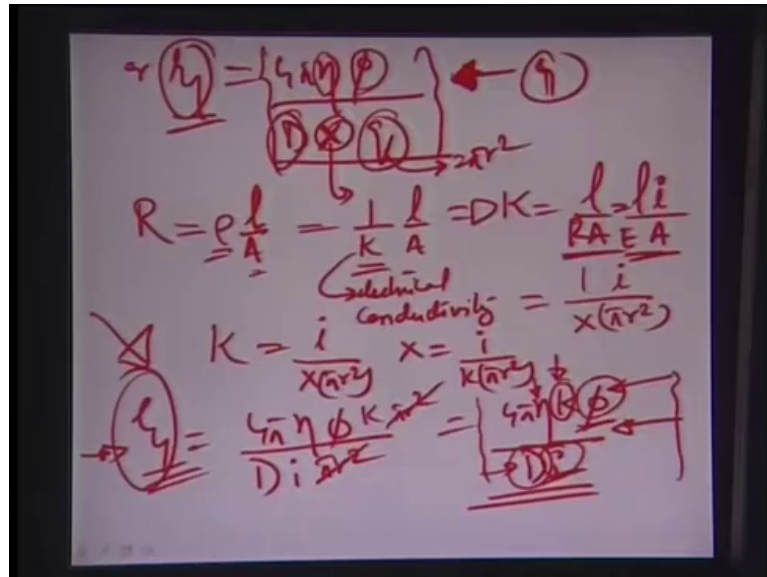 or ζ = 4πηφ / D X V ← ζ
→ 2πr²
R = ρ l/A = 1/K l/A = DK = l/RA = l i/E A
→ electrical conductivity = 1 i/x(πr²)
K = i/x(πr²) x = i/K(πr²)
ζ = 4πη φ K πr² / D i πr² = 4πη K φ / D i